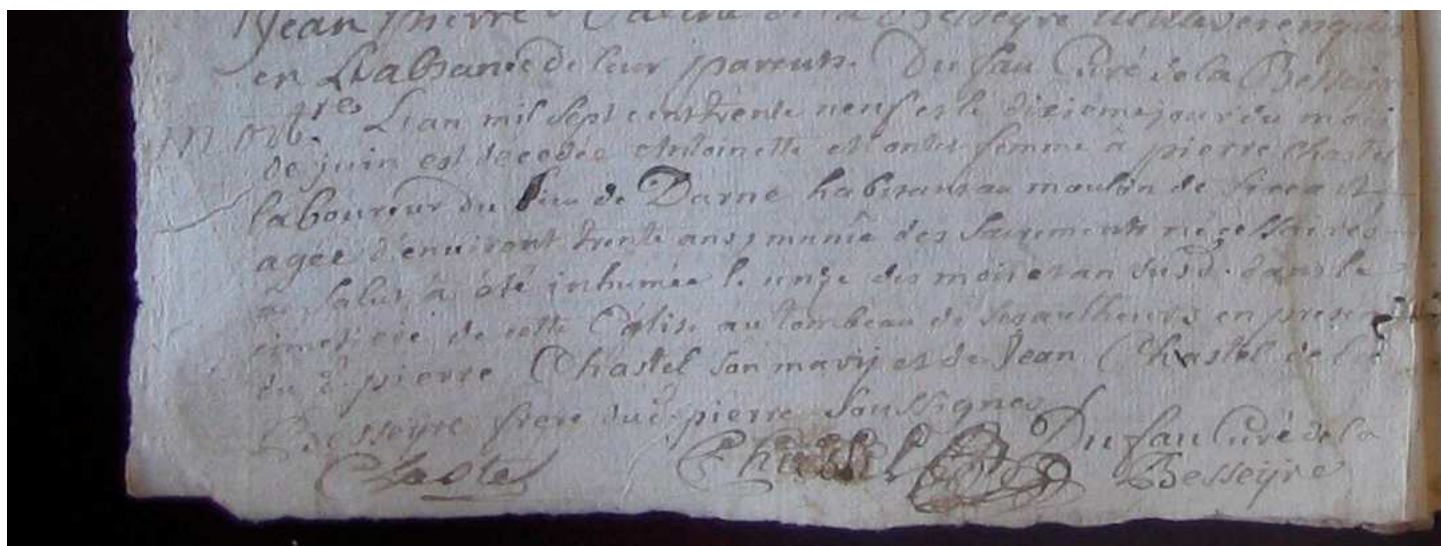 Jean pierre de la Besseyre
en Labsance de leur parents. Du fau Curé de la Besseyre
mort.
Lan mil sept cent trente neuf et le dixième jour du mois
de juin est decedée Antoinette femme à pierre Chastel
laboureur du lieu de Darne habitant au moulin de
agée d'environt trente ans, munie des Sacrements nécessaires
au salut, à été inhumée le onze des mois et an susd. dans le
cimetiere de cette Eglise au tombeau de en presence
du d. pierre Chastel son mary et de Jean Chastel de la
Besseyre frere dud. pierre Soussignés
Chastel Chastel Du fau Curé de la
Besseyre